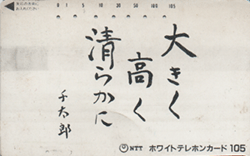 大きく
高く
清らかに
千太郎
NTT ホワイトテレホンカード 105